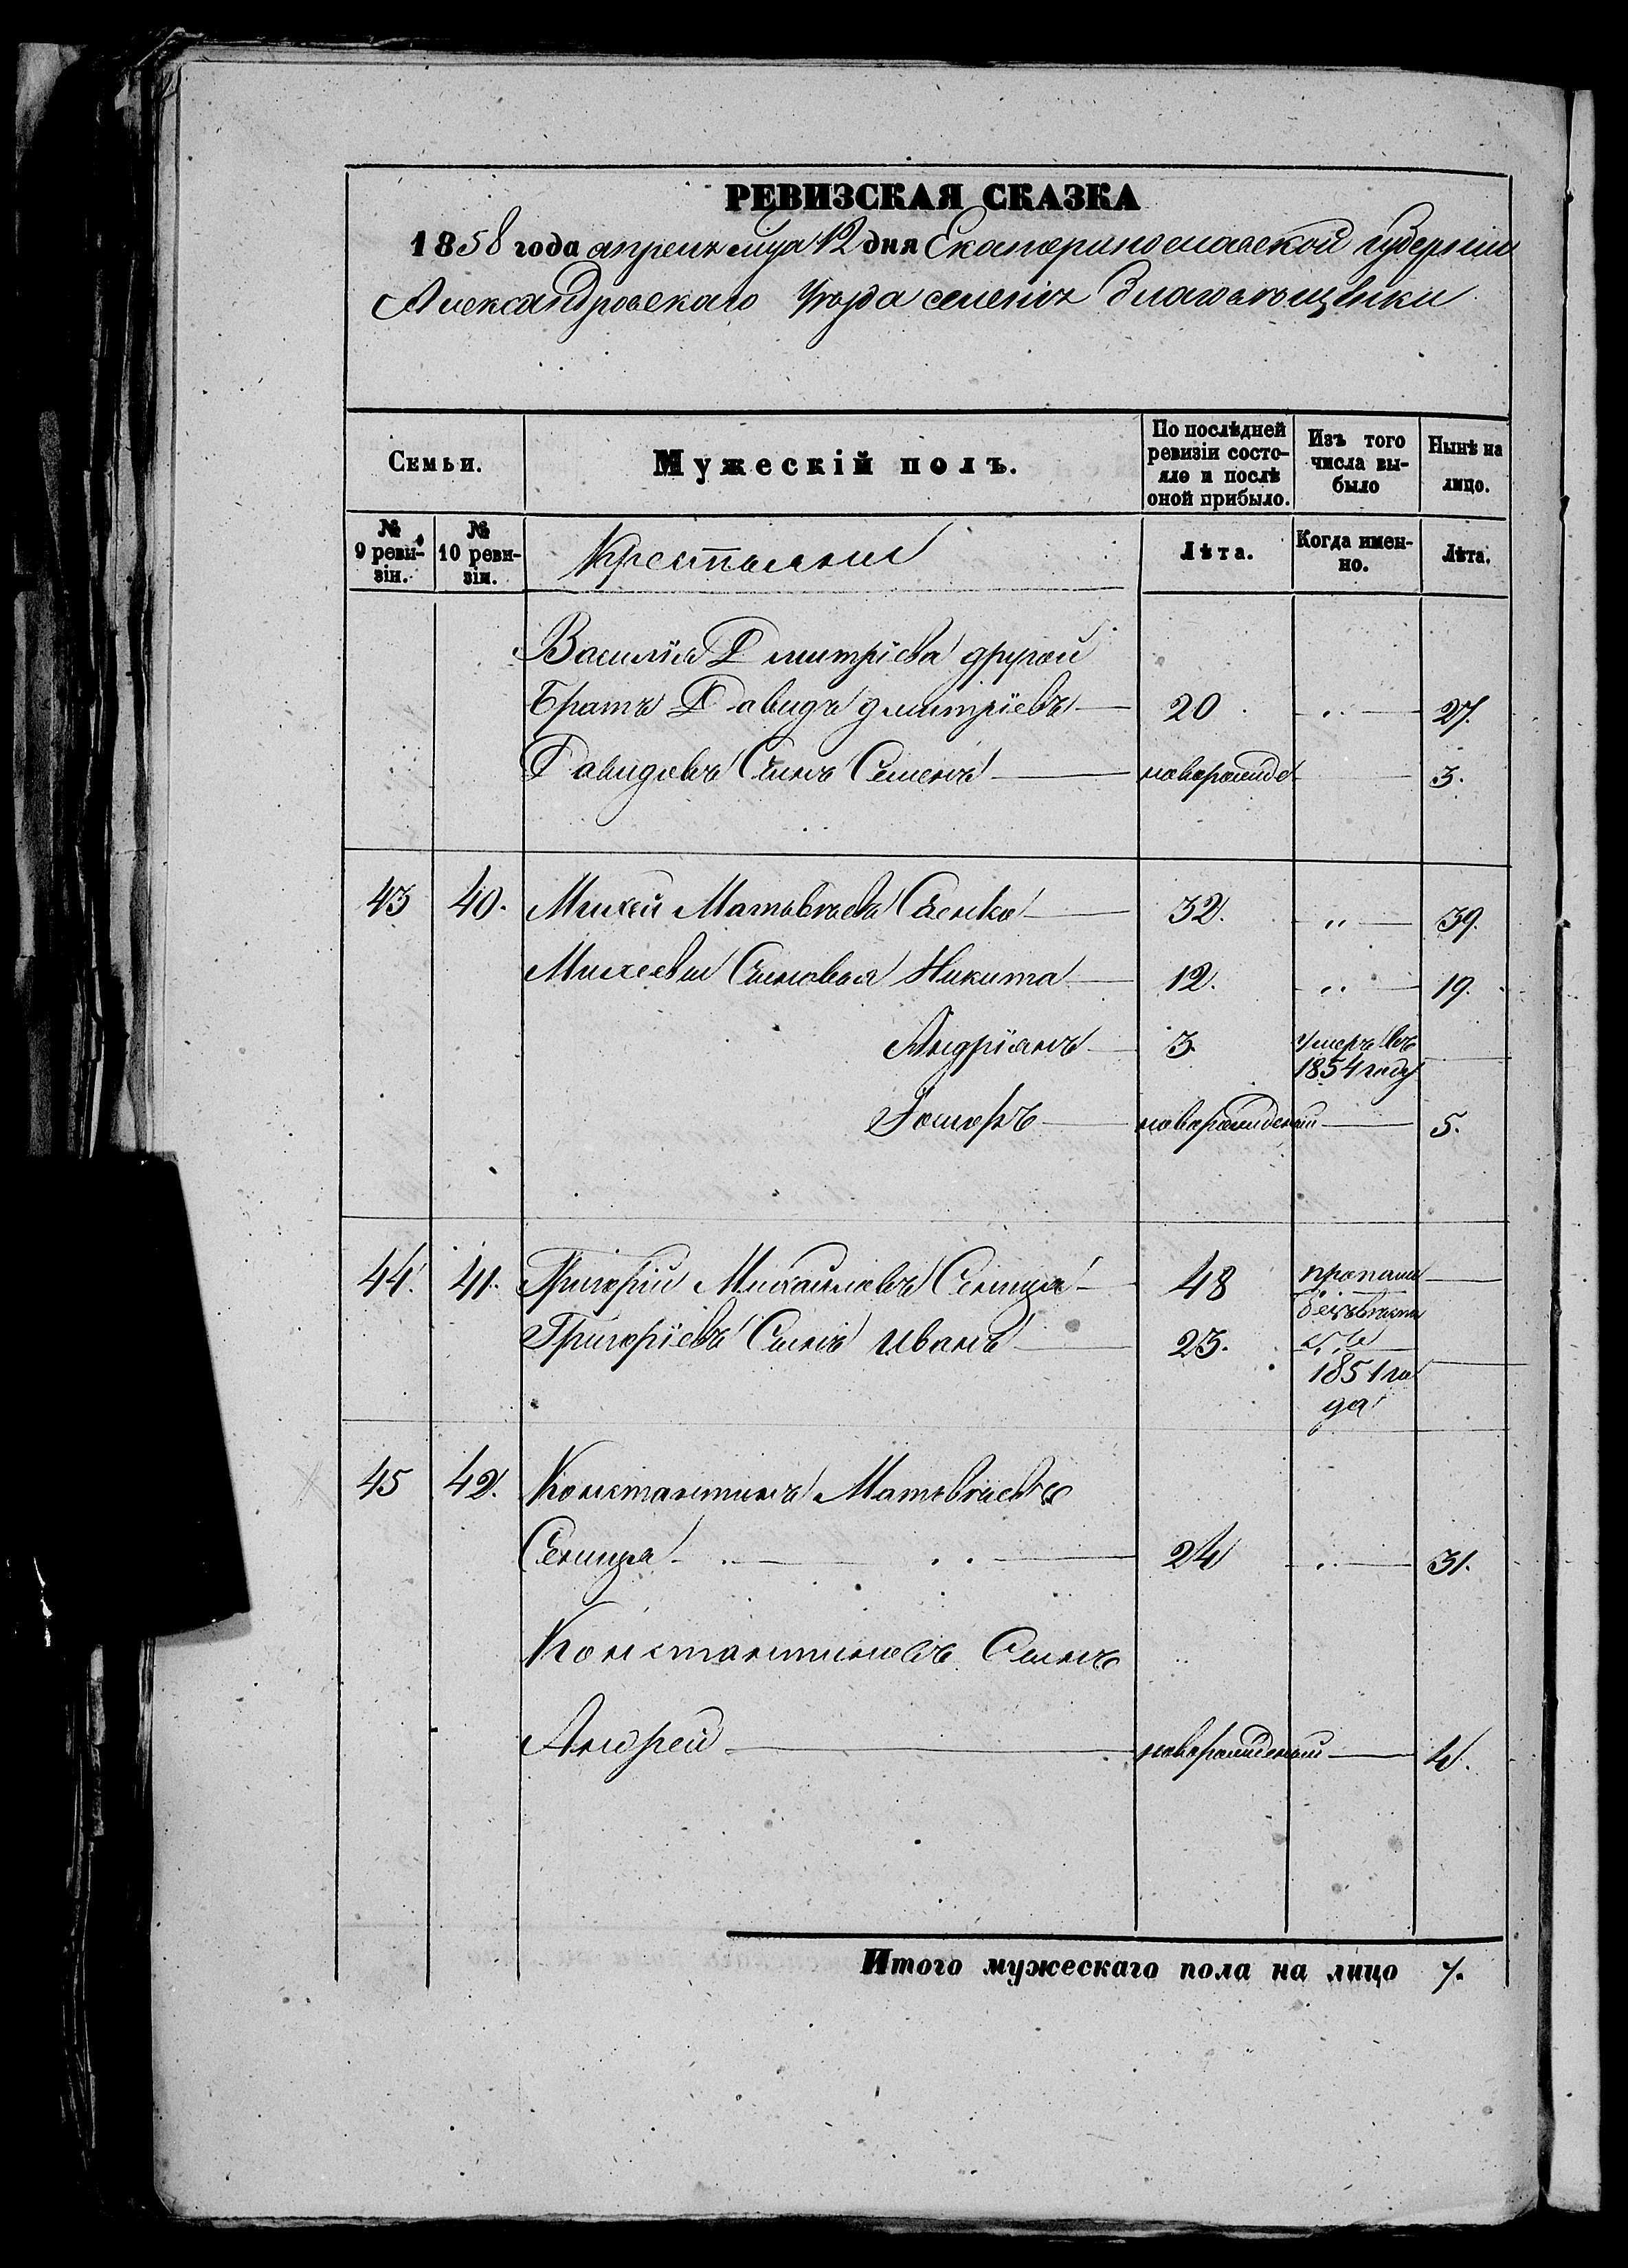 РЕВИЗСКАЯ СКАЗКА
1858 года апреля мца 12 дня Екатеринославской губернiи
Александровскаго уѣзда селенiя Благовѣщенки
Семьи.
Мужескiй полъ.
По послѣдней ревизiи состояло и послѣ оной прибыло.
Изъ того числа выбыло
Нынѣ на лицо.
№ 9 ревизiи.
№ 10 ревизiи.
Крестьяне
Лѣта.
Когда именно.
Лѣта.
Василiя Дмитрiева другой
братъ Давидъ Дмитрiевъ 20 27.
Давидовъ Сынъ Семенъ новорожде 3.
43 40. Михей Матвѣевъ 32. 39.
Михеевы Сыновья Никита 12. 19.
Андрiянъ 3 умеръ въ
1854 году
новорожденый 5.
44. 41. Григорiй Михайловъ Сеница 48 пропали
безъвѣсно
Григорiевъ Сынъ Иванъ 23. съ
1851 го
да
45 42. Константинъ Матвѣевъ
Сеница 24 31.
Константиновъ Сынъ
Андрей новорожденый 4.
Итого мужескаго пола на лицо 7.